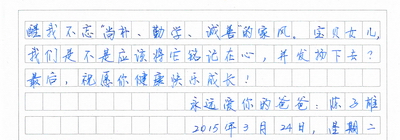 醒我不忘“尚朴、勤学、诚善”的家风。宝贝女儿,
我们是不是应该将它铭记在心,并发扬下去?
最后,祝愿你健康快乐成长!
永远爱你的爸爸:陈雄
2015年3月24日,星期二